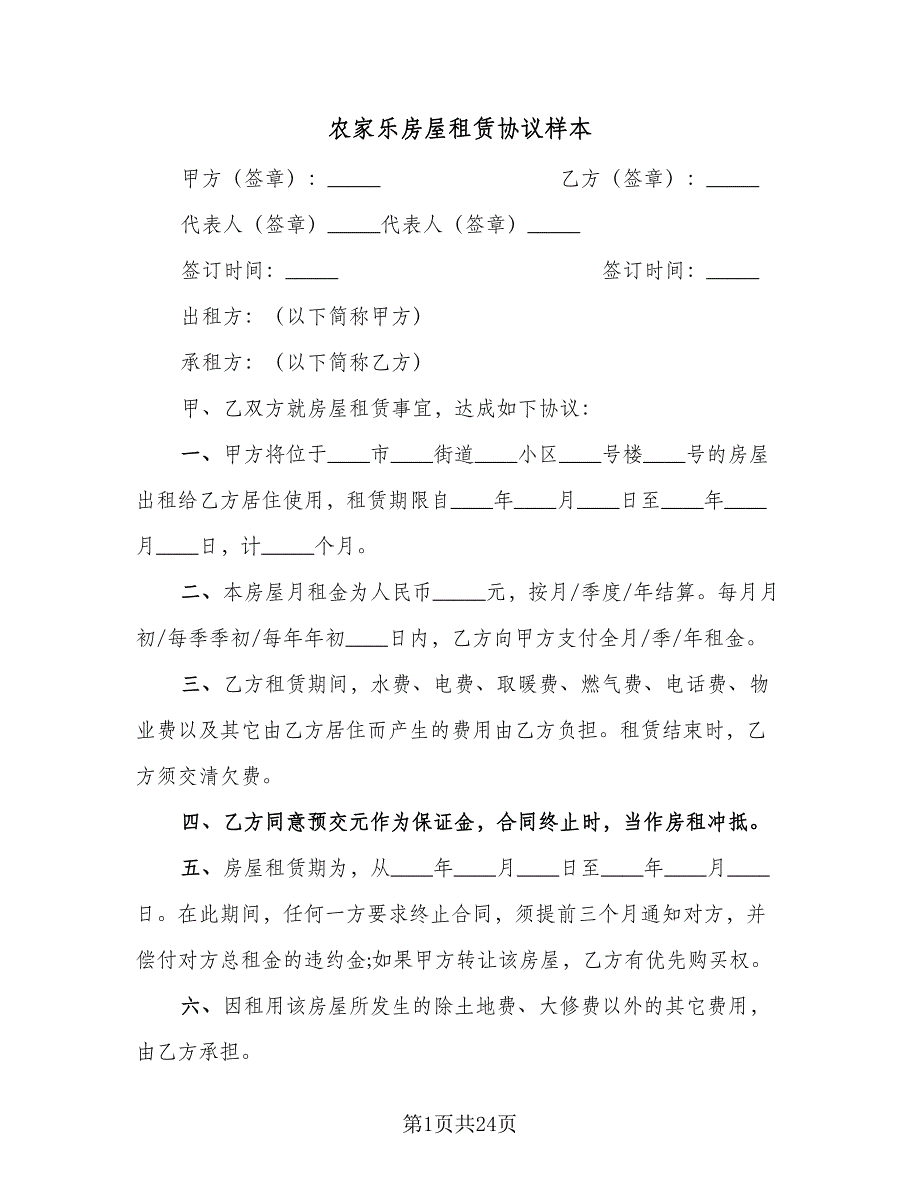 农家乐房屋租赁协议样本
甲方（签章）：_____ 乙方（签章）：_____
代表人（签章）_____代表人（签章）_____
签订时间：_____ 签订时间：_____
出租方：（以下简称甲方）
承租方：（以下简称乙方）
甲、乙双方就房屋租赁事宜，达成如下协议：
一、甲方将位于____市____街道____小区____号楼____号的房屋
出租给乙方居住使用，租赁期限自____年____月____日至____年____
月____日，计_____个月。
二、本房屋月租金为人民币_____元，按月/季度/年结算。每月月
初/每季季初/每年年初____日内，乙方向甲方支付全月/季/年租金。
三、乙方租赁期间，水费、电费、取暖费、燃气费、电话费、物
业费以及其它由乙方居住而产生的费用由乙方负担。租赁结束时，乙
方须交清欠费。
四、乙方同意预交元作为保证金，合同终止时，当作房租冲抵。
五、房屋租赁期为，从____年____月____日至____年____月____
日。在此期间，任何一方要求终止合同，须提前三个月通知对方，并
偿付对方总租金的违约金;如果甲方转让该房屋，乙方有优先购买权。
六、因租用该房屋所发生的除土地费、大修费以外的其它费用，
由乙方承担。
第1页共24页